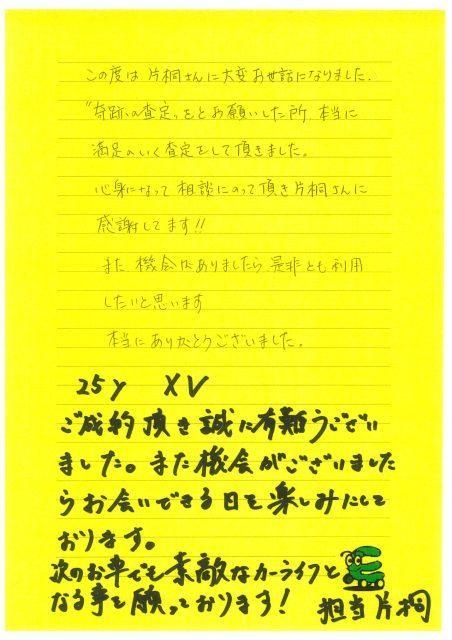 この度は片桐さんに大変お世話になりました.
"奇跡の査定"をとお願いした所、本当に
満足のいく査定をして頂きました。
心身になって相談にのって頂き片桐さんに
感謝してます!!
また機会がありましたら是非とも利用
したいと思います
本当にありがとうございました。
25y XV
ご成約頂き誠に有難うござい
ました。また機会がございました
らお会いできる日を楽しみにして
おります。
次のお車でも素敵なカーライフと
なる事を願っております!
担当片桐